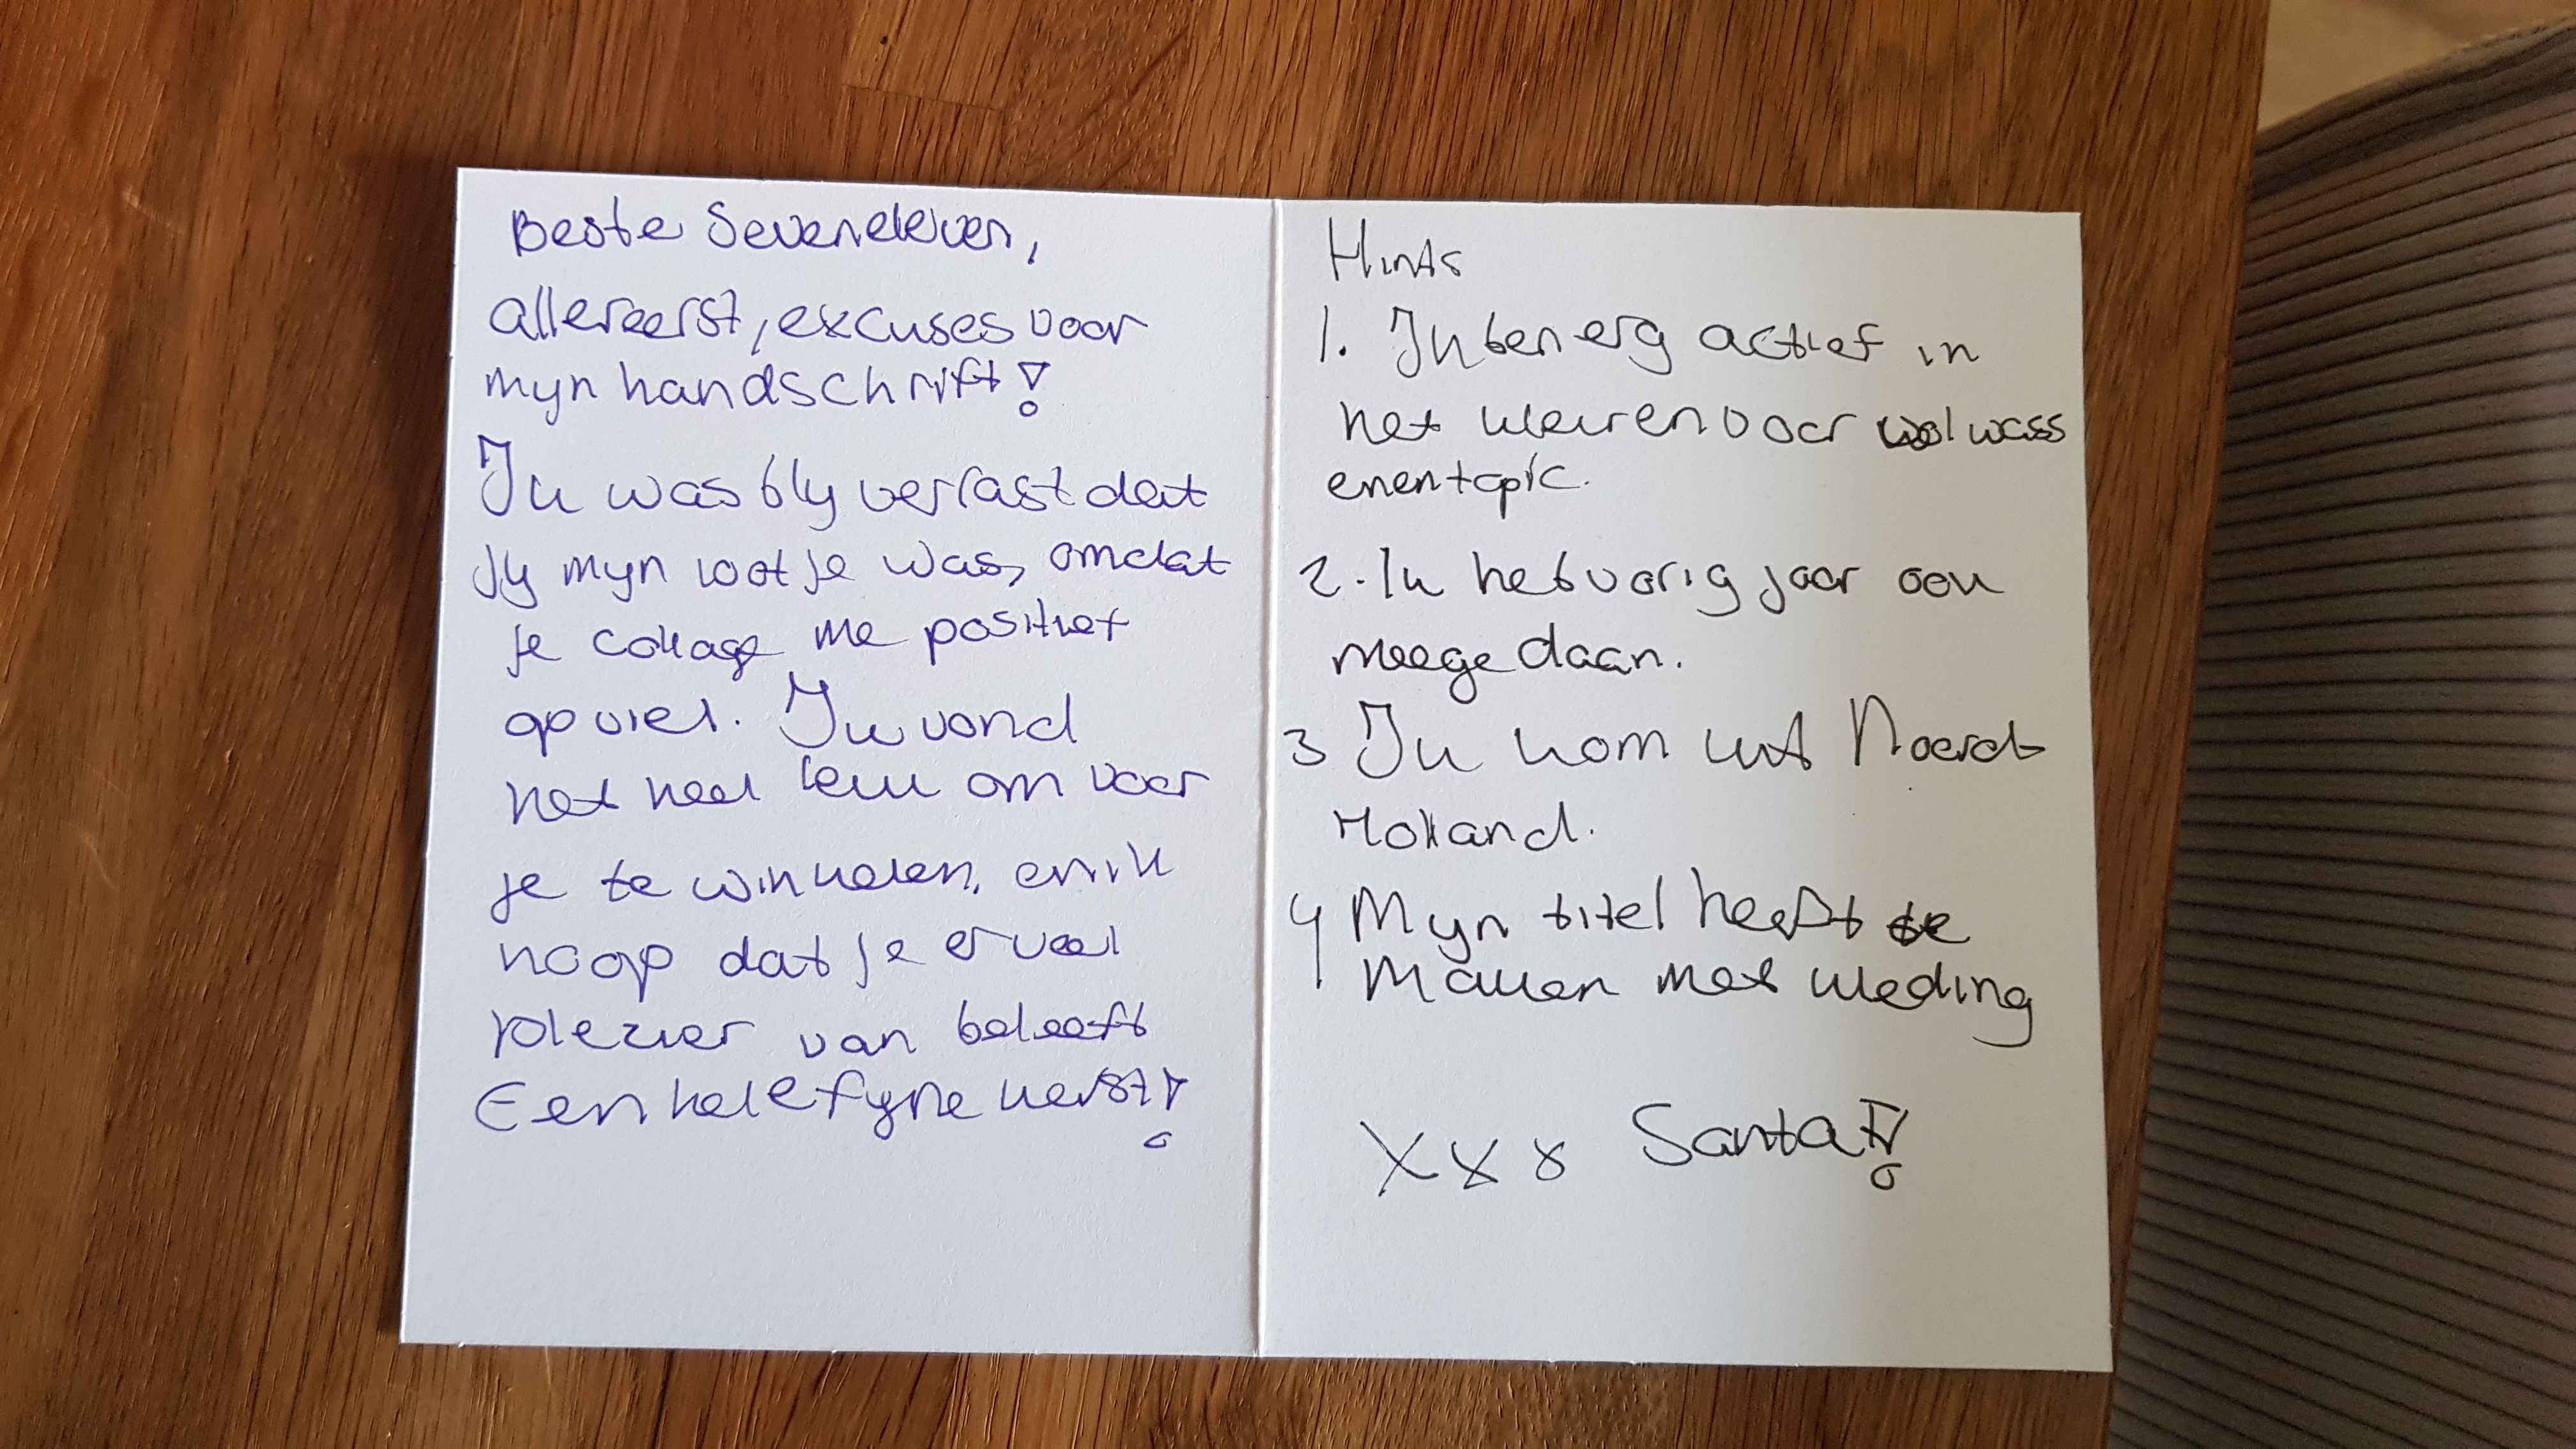 Beste Seveneleven,
allereerst, excuses voor
mijn handschrift!
Ik was blij verrast dat
jij mijn lootje was, omdat
je collage me positief
op viel. Ik vond
het heel leuk om voor
je te winkelen, en ik
hoop dat je er veel
plezier van beleeft
Een hele fijne kerst!
Hints
1. Ik ben erg actief in
het kleuren voor volwass
enen topic.
2. Ik heb vorig jaar ook
meegedaan.
3 Ik kom uit Noord
Holland.
4 Mijn titel heeft te
Maken met kleding
XXX Santa!